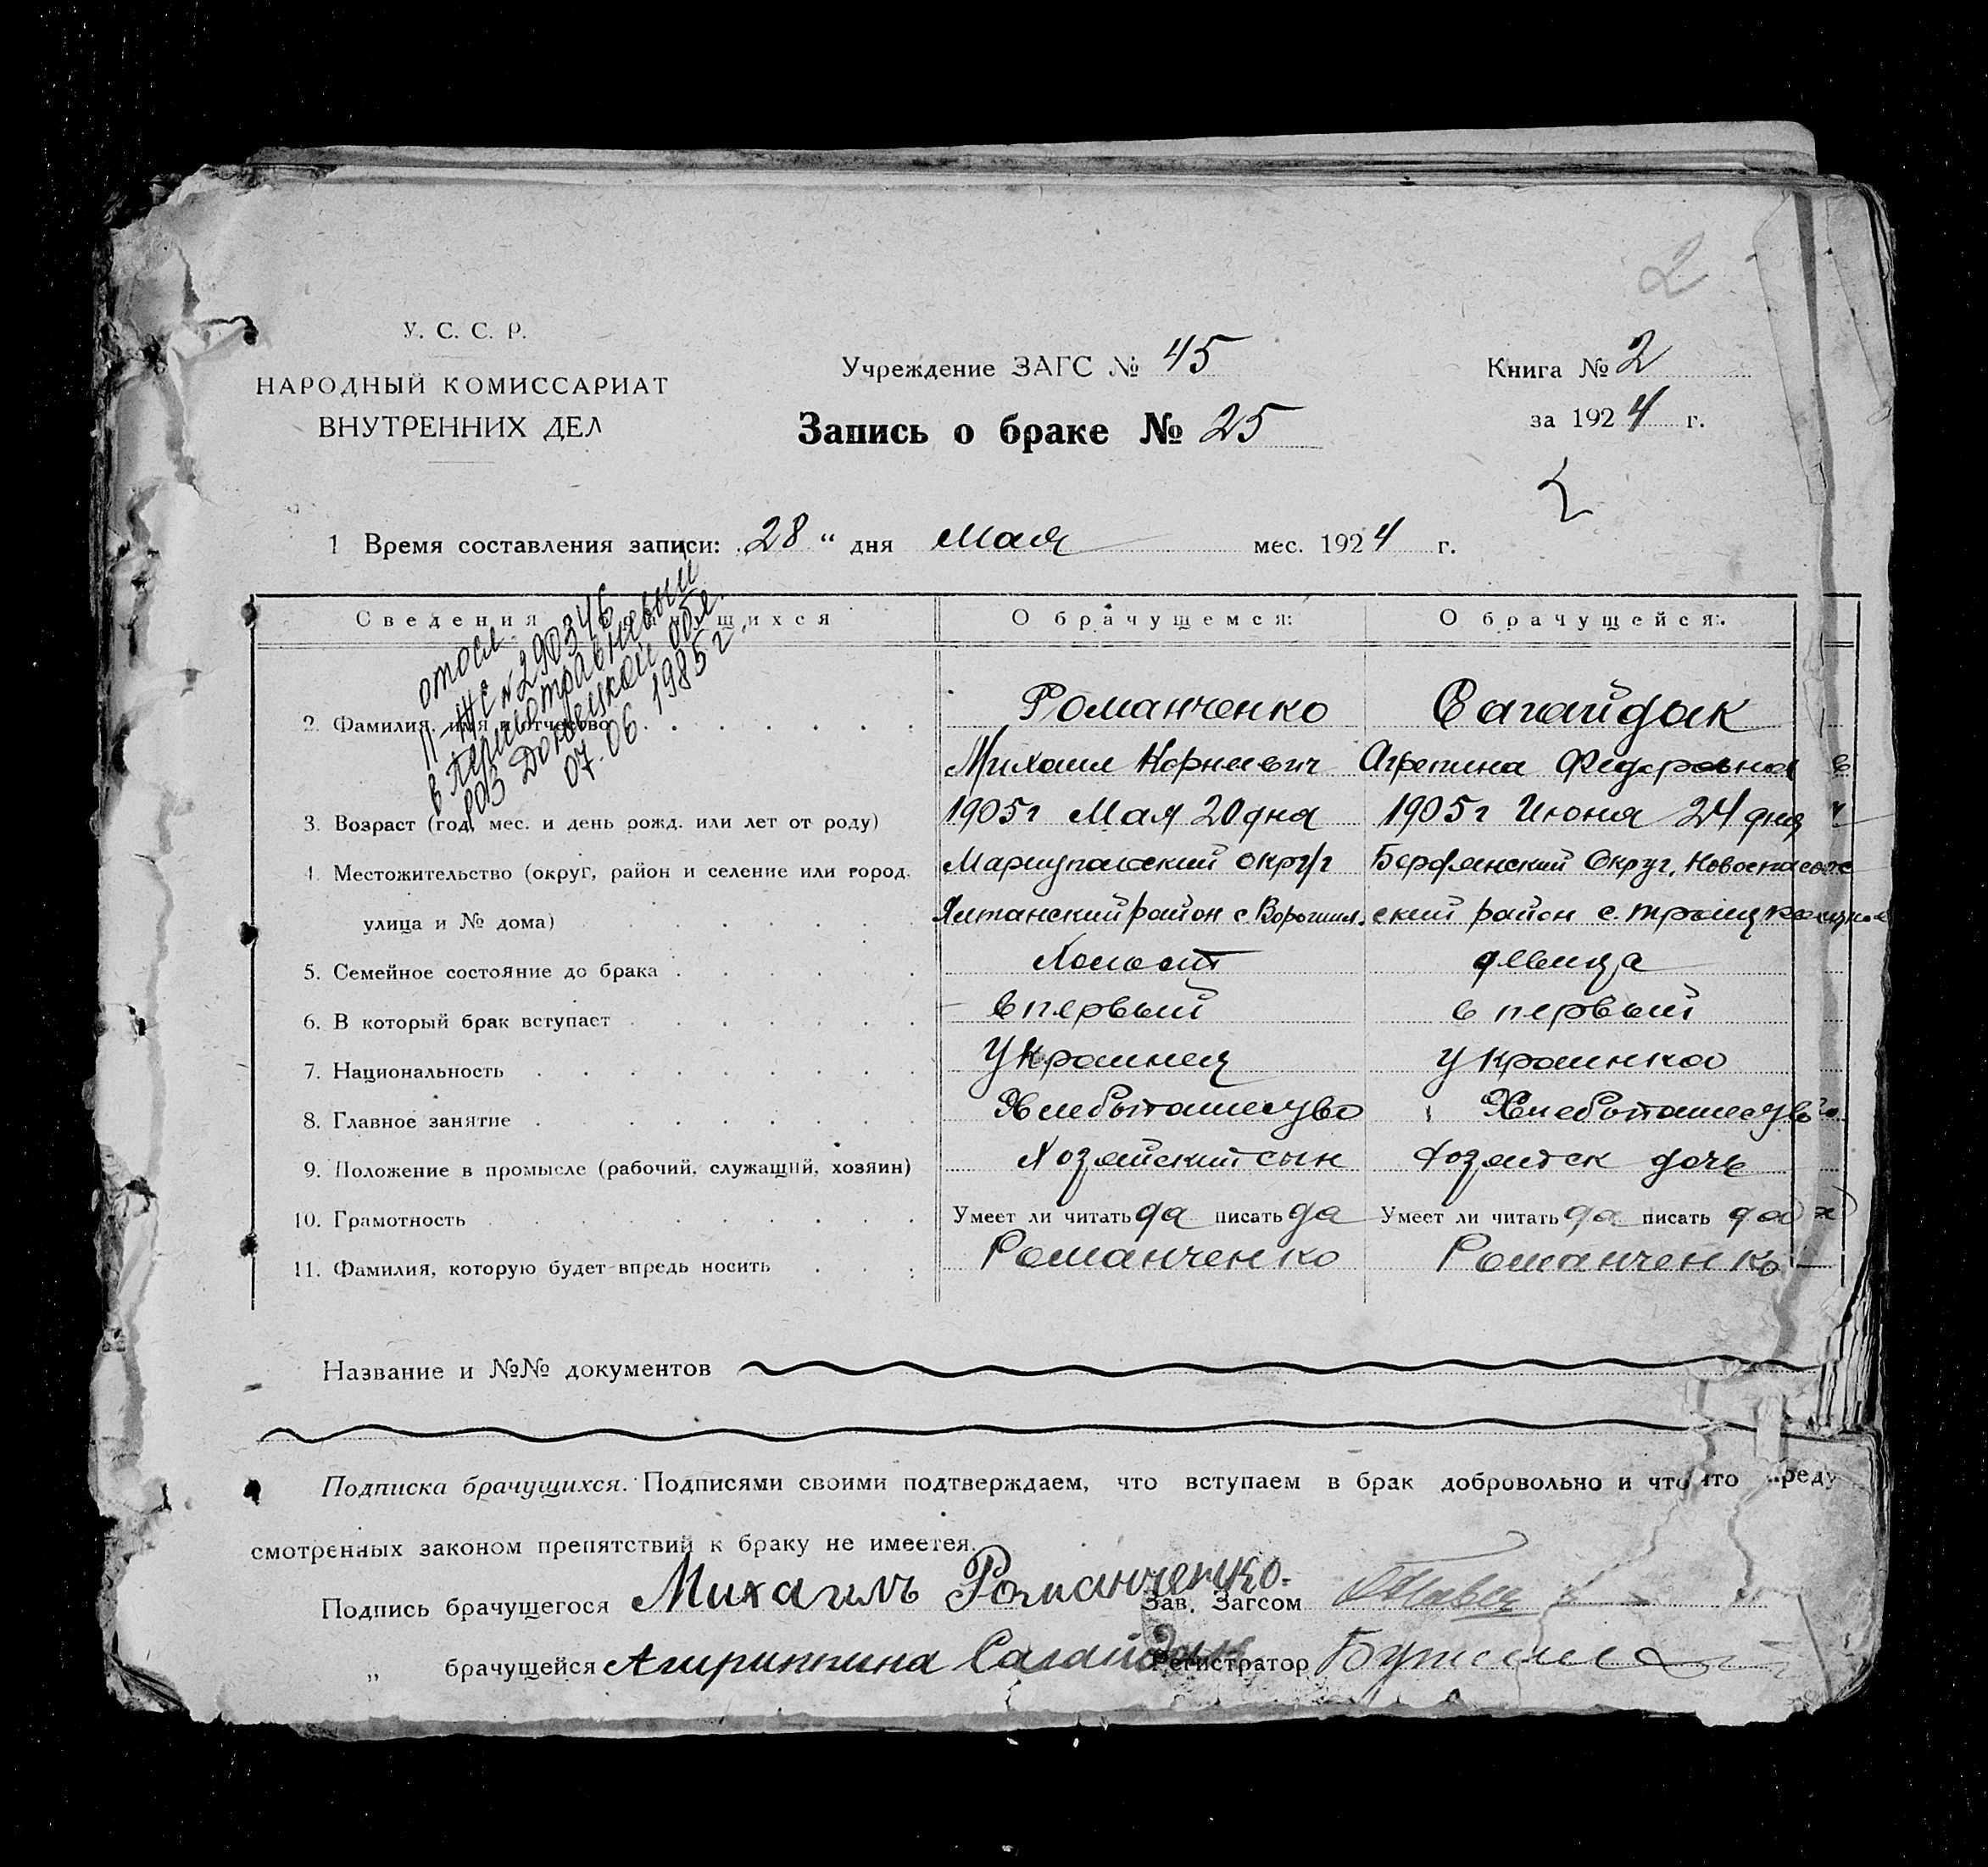 2
У. С. С. Р.
НАРОДНЫЙ КОМИССАРИАТ
ВНУТРЕННИХ ДЕЛ
Учреждение ЗАГС № 45
Запись о браке № 25
Книга № 2
за 1924 г.
1 Время составления записи: 28 " дня Мая мес. 1924 г.
Сведения щихся О брачущемся: О брачущейся:
отосл.
II-ЖС № 290346
в Першотравневый
РОВ Донецкой обл.
07.06 1985 г.
2. Фамилия, имя и отчество Романченко Сагайдак
Михаил Корнеевич Агрепина Федоровна
3. Возраст (год, мес. и день рожд. или лет от роду) 1905 г Мая 20 дня 1905 г Июня 24 дня
4. Местожительство (округ, район и селение или город, Мариупольский округ Бердянский Округ, Новоспасов
улица и № дома) Ялтанский район с. ский район с.
5. Семейное состояние до брака Холост девица
6. В который брак вступает в первый в первый
7. Национальность Украинец Украинка
8. Главное занятие
9. Положение в промысле (рабочий, служащий, хозяин) Хозяйский сын дочь
10. Грамотность Умеет ли читать да писать да Умеет ли читать да писать да
11. Фамилия, которую будет впредь носить Романченко Романченко
Название и №№ документов
Подписка брачущихся. Подписями своими подтверждаем, что вступаем в брак добровольно и что преду
смотренных законом препятствий к браку не имеется.
Подпись брачущегося Михаилъ Романченко. Зав. Загсом
„ брачущейся Агириппина Сагайдак Регистратор